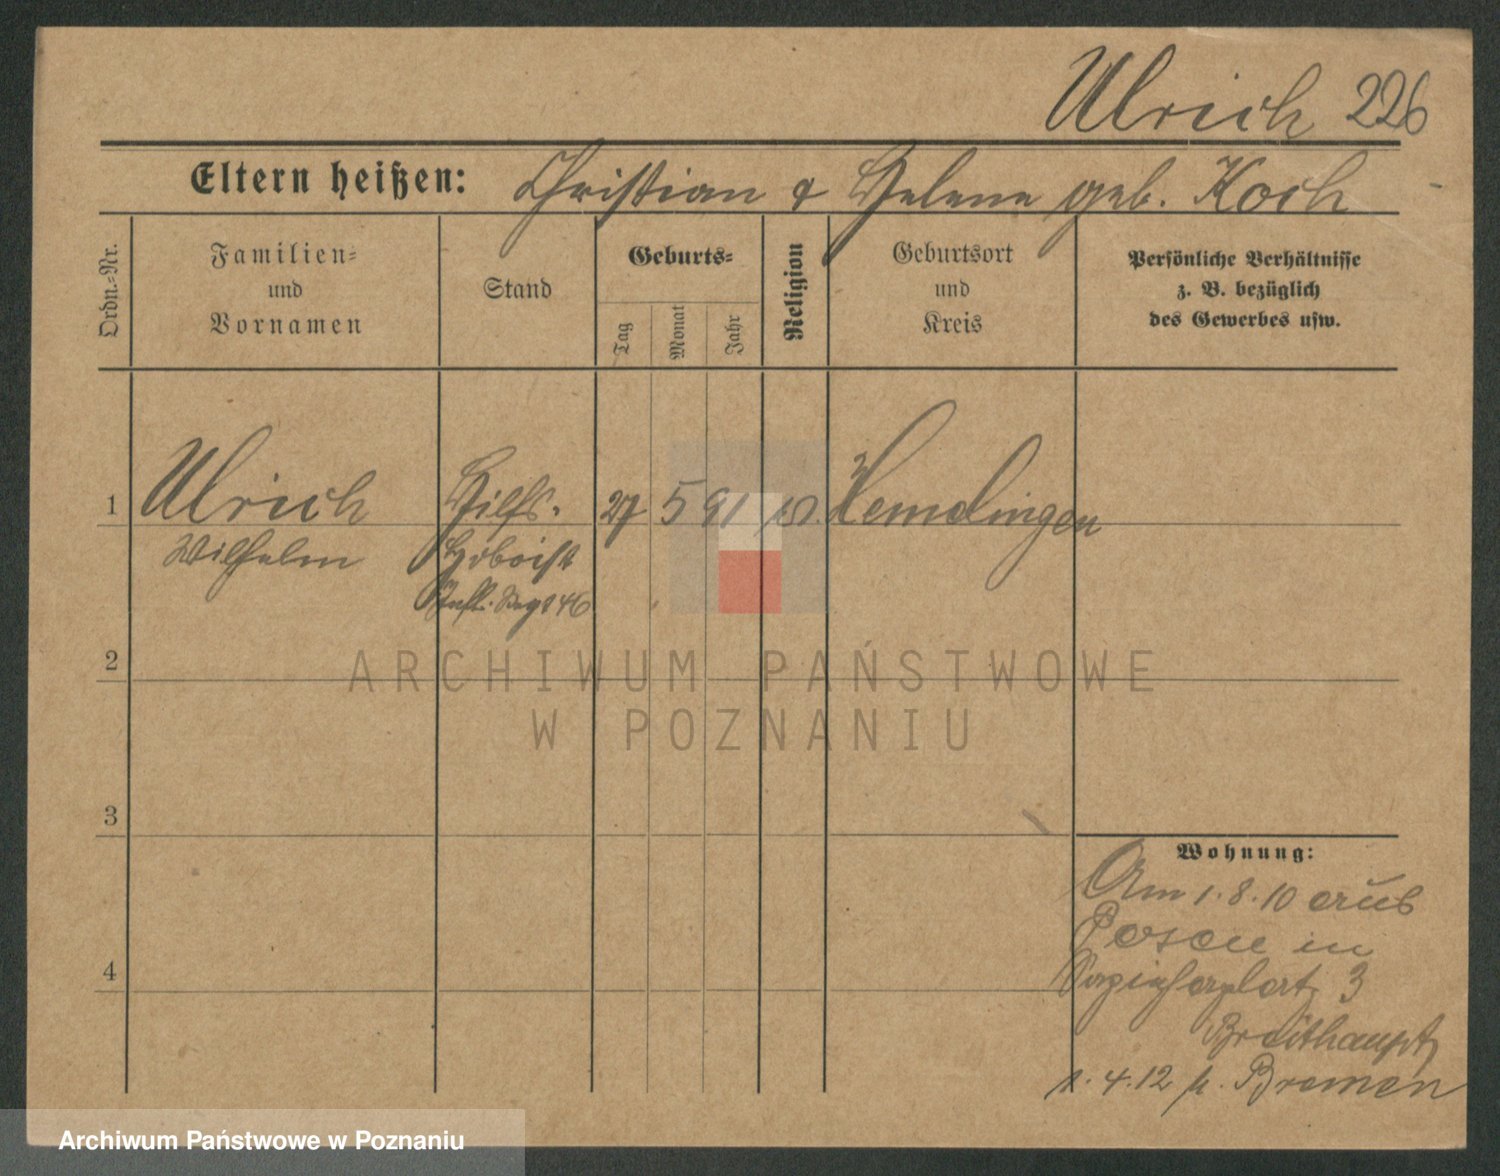 Ulrich 226
Eltern heißen: Christian & Helene geb. Koch
Ordn.-Nr.
Familien-
und
Vornamen
Stand
Geburts-
Tag
Monat
Jahr
Religion
Geburtsort
und
Kreis
Persönliche Verhältnisse
z. B. bezüglich
des Gewerbes usw.
1 Ulrich Hilfs- 27 5 91 Hemdingen
Wilhelm Hoboist
Inft. Regt 46
2
3
4
ARCHIWUM PAŃSTWOWE
W POZNANIU
Wohnung:
Am 1.8.10 aus
Posen in
3
Breithaupt
1.4.12 n. Bremen
Archiwum Państwowe w Poznaniu